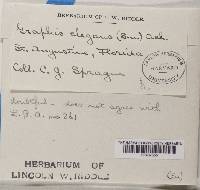 HERBARIUM OF L. W. RIDDLE
Graphis elegans (Sm) Ach.
St. Augustine, Florida
Coll. C. G. Sprague
doubtful - does not agree with
HERBARIUM OF
LINCOLN W. RIDDLE